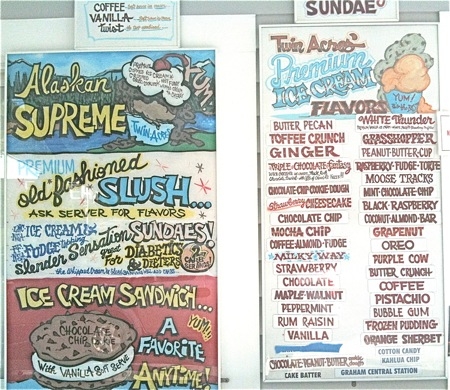 COFFEE
VANILLA
twist
Alaskan
SUPREME
YUM!
Twin Acres
PREMIUM
old fashioned
SLUSH...
ASK SERVER FOR FLAVORS
ICE CREAM SUNDAES!
FUDGE
Slender Sensation
good for
DIABETICS
& DIETERS
ICE CREAM SANDWICH...
YUM!
CHOCOLATE
CHIP COOKIE
WITH VANILLA SOFT SERVE
A
FAVORITE
ANYTIME!
SUNDAES
Twin Acres
Premium
ICE CREAM
FLAVORS
YUM!
BUTTER PECAN
TOFFEE CRUNCH
GINGER
TRIPLE-CHOCOLATE fantasy
CHOCOLATE-CHIP COOKIE-DOUGH
strawberry CHEESECAKE
CHOCOLATE CHIP
MOCHA CHIP
COFFEE-ALMOND-FUDGE
MILKY WAY
STRAWBERRY
CHOCOLATE
MAPLE-WALNUT
PEPPERMINT
RUM RAISIN
VANILLA
CHOCOLATE-PEANUT-BUTTER
CAKE BATTER
WHITE Thunder
GRASSHOPPER
PEANUT-BUTTER-CUP
RASPBERRY-FUDGE-TORTE
MOOSE TRACKS
MINT-CHOCOLATE-CHIP
BLACK RASPBERRY
COCONUT-ALMOND-BAR
GRAPENUT
OREO
PURPLE COW
BUTTER CRUNCH
COFFEE
PISTACHIO
BUBBLE GUM
FROZEN PUDDING
ORANGE SHERBET
COTTON CANDY
KAHLUA CHIP
GRAHAM CENTRAL STATION